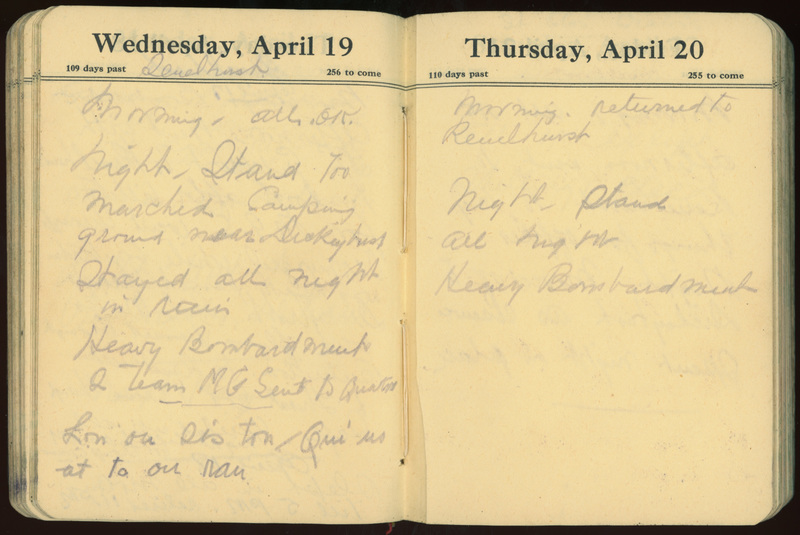 Wednesday, April 19
109 days past
256 to come
Morning - all. OK.
Night - Stand Too
Marched Camping
ground near
Stayed all night
in rain
Heavy Bombardment
2 Team MG Sent to
Thursday, April 20
110 days past
255 to come
Morning. returned to
Renelhurst
Night - Stand
all night
Heavy Bombardment